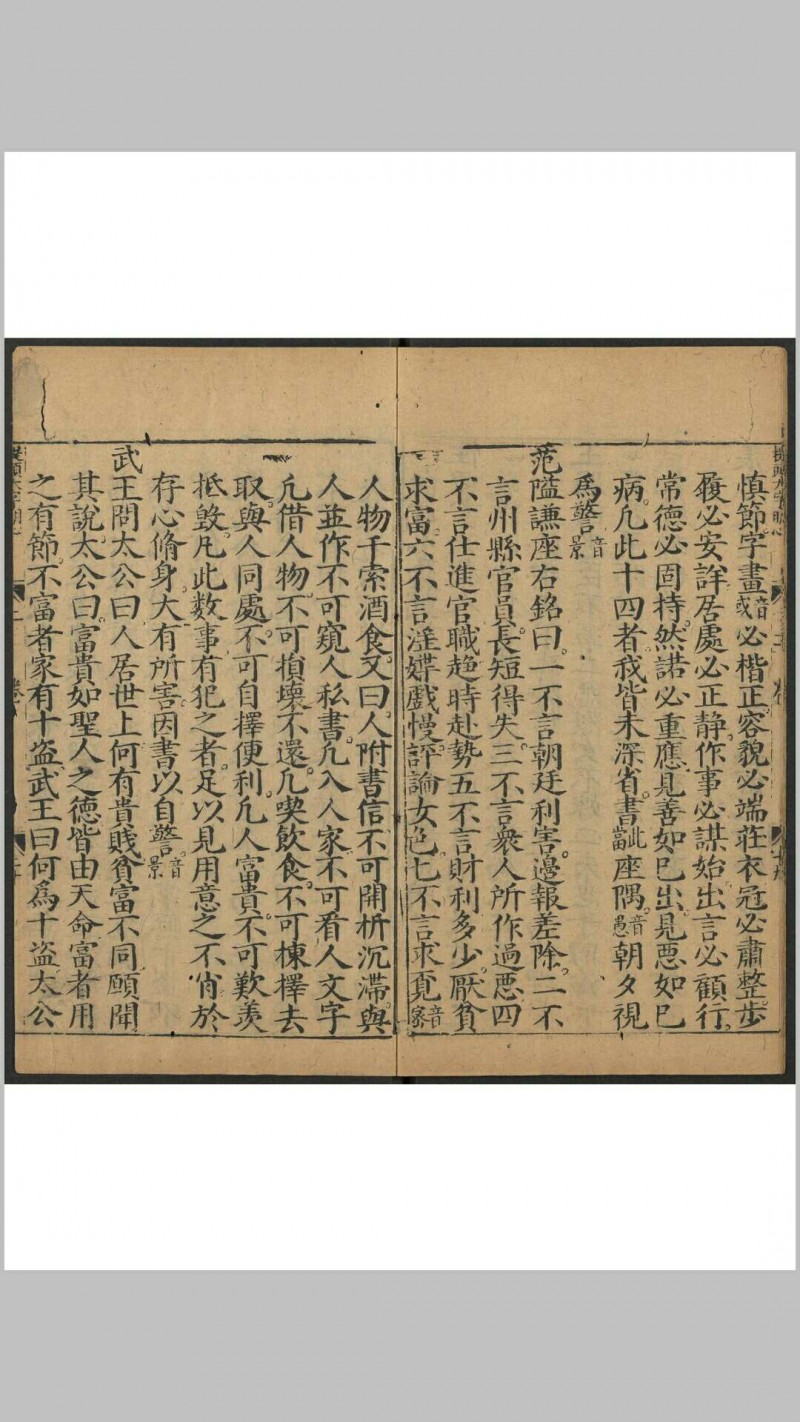 慎節字畫音或必楷正容貌必端莊衣冠必肅整步
履必安詳居處必正靜作事必謀始出言必顧行
常德必固持然諾必重應見善如巳出見惡如巳
病凡此十四者我皆未深省書此當座隅音愚朝夕視
爲警音景
范隘謙座右銘曰一不言朝廷利害邊報差除二不
言州縣官員長短得失三不言衆人所作過惡四
不言仕進官職趍時赴勢五不言財利多少厭貧
求富六不言淫媟戲慢評論女色七不言求覔音審
人物千索酒食又曰人附書信不可開柝沉滯與
人並作不可窺人私書凡入人家不可看人文字
凢借人物不可損壞不還凢喫飲食不可棟擇去
取與人同處不可自擇便利凢人富貴不可歎羡
抵毀凡此数事有犯之者足以見用意之不肖於
存心脩身大有所害因書以自警音景
武王問太公曰人居世上何有貴賤貧富不同願聞
其說太公曰富貴如聖人之德皆由天命富者用
之有節不富者家有十盗武王曰何爲十盗太公